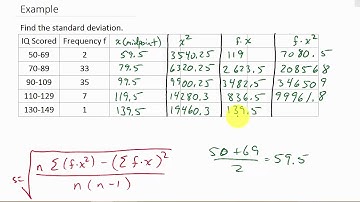 Example
Find the standard deviation.
IQ Scored Frequency f x (midpoint) x² f·x f·x²
50-69 2 59.5 3540.25 119 7080.5
70-89 33 79.5 6320.25 2623.5 208568
90-109 35 99.5 9900.25 3482.5 346509
110-129 7 119.5 14280.3 836.5 99961.8
130-149 1 139.5 19460.3 139.5
s= √ n Σ(f·x²) - (Σ f·x)² / n(n-1)
50+69 / 2 = 59.5